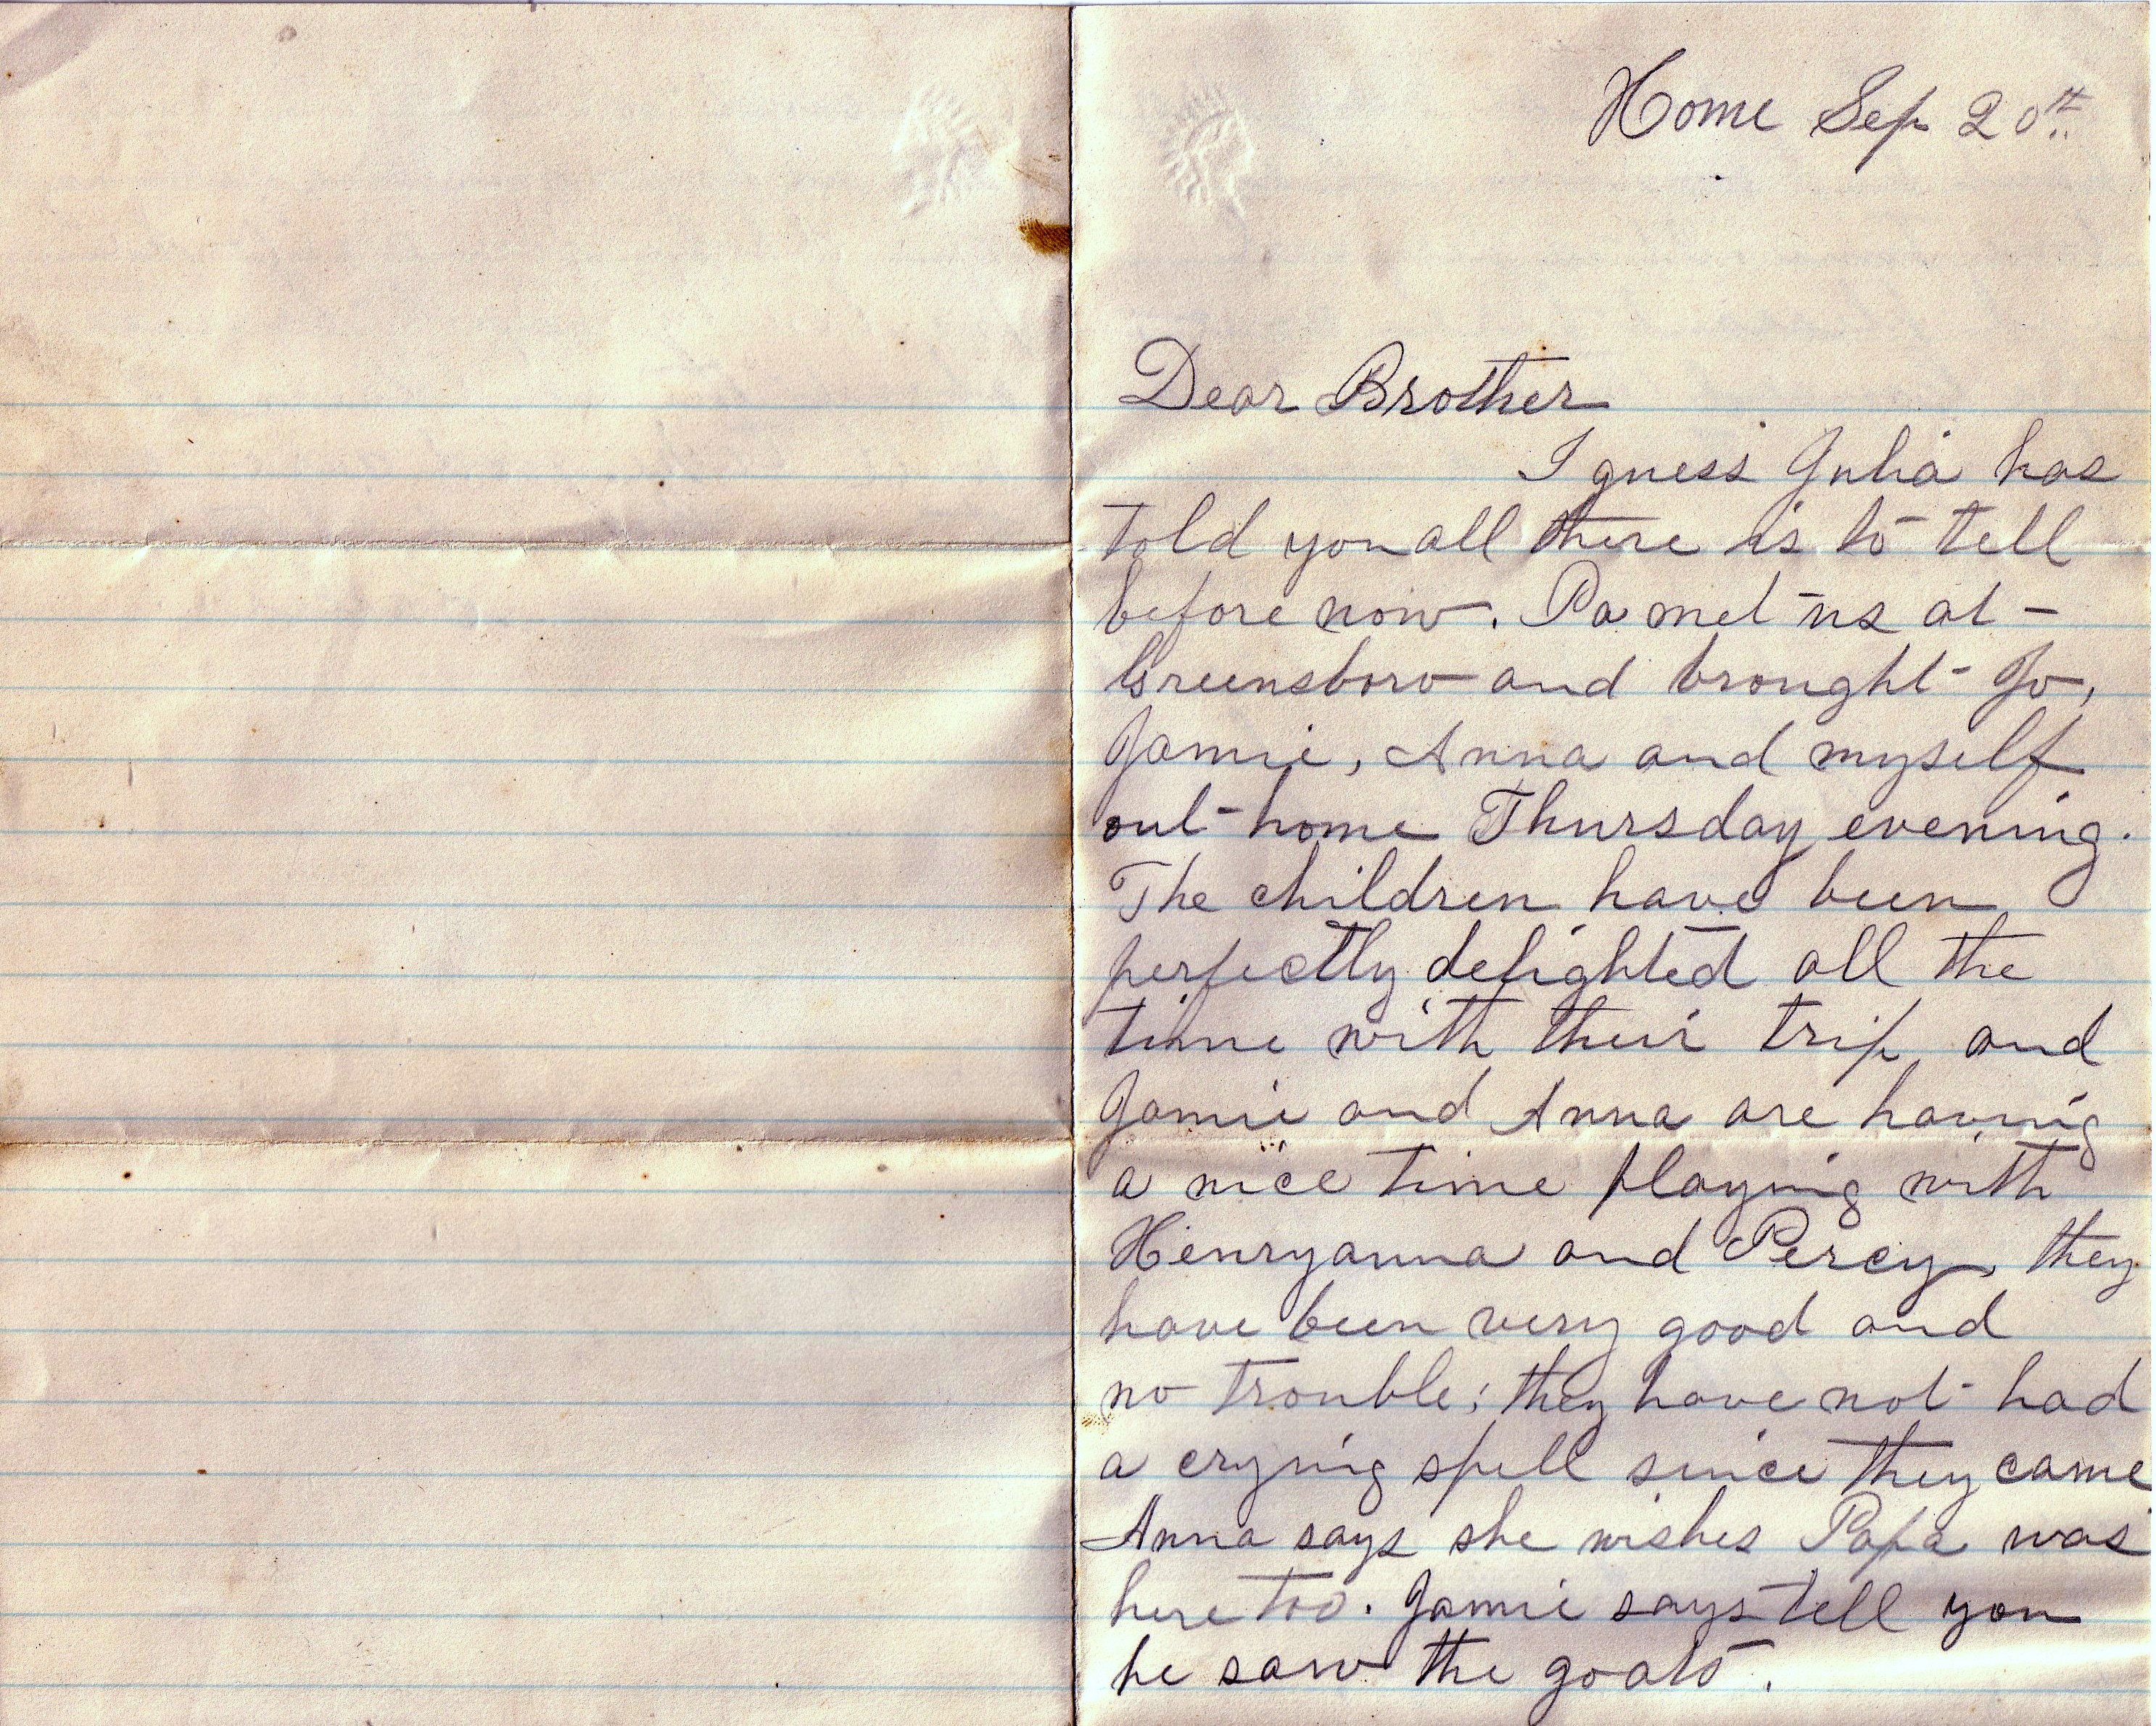 Home Sep 20th
Dear Brother
I guess Julia has
told you all there is to tell
before now. Pa met us at
Greensboro and brought Jo,
Jamie, Anna and myself
out home Thursday evening.
The children have been
perfectly delighted all the
time with their trip and
Jamie and Anna are having
a nice time playing with
Henryanna and Percy, they
have been very good and
no trouble; they have not had
a crying spell since they came
Anna says she wishes Papa was
here too. Jamie says tell you
he saw the goats.